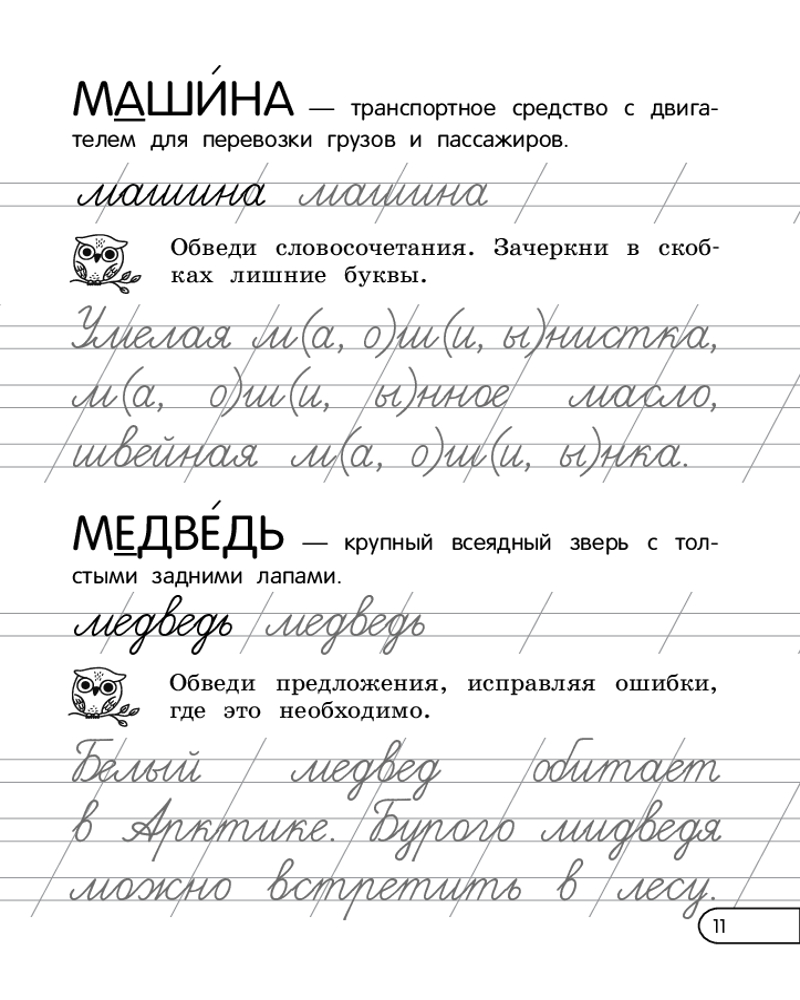 МАШИ́НА — транспортное средство с двига-
телем для перевозки грузов и пассажиров.
машина машина
Обведи словосочетания. Зачеркни в скоб-
ках лишние буквы.
Умелая м(а, о)ш(и, ы)нистка,
м(а, о)ш(и, ы)нное масло,
швейная м(а, о)ш(и, ы)нка.
МЕДВЕ́ДЬ — крупный всеядный зверь с тол-
стыми задними лапами.
медведь медведь
Обведи предложения, исправляя ошибки,
где это необходимо.
Белый медвед обитает
в Арктике. Бурого мидведя
можно встретить в лесу.
11